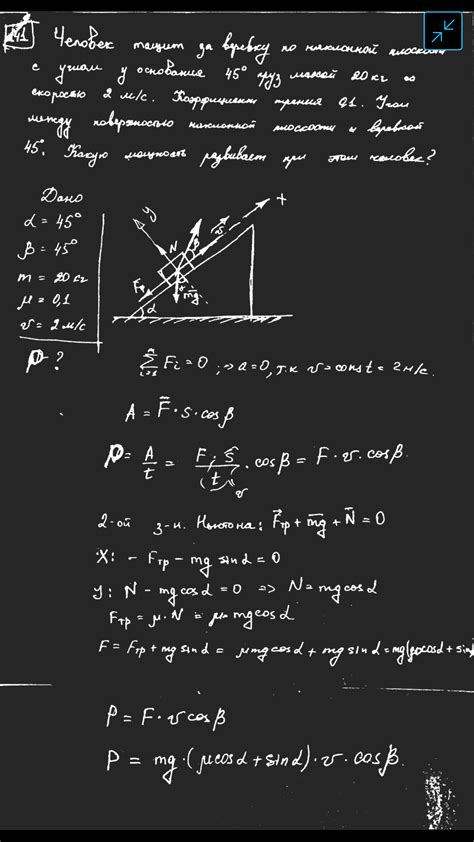 41 Человек тащит за верёвку по наклонной плоскости
с углом у основания 45° груз массой 20 кг со
скоростью 2 м/с. Коэффициент трения 0,1. Угол
между поверхностью наклонной плоскости и верёвкой
45°. Какую мощность развивает при этом человек?
Дано
α = 45°
β = 45°
m = 20 кг
μ = 0,1
v = 2 м/с
P ?
y N β v +
Fтр mg α
∑ Fi = 0, => a = 0, т.к v = const = 2 м/с.
A = F̅ · s · cosβ
P = A/t = F · s/(t) · cosβ = F · v · cosβ.
v
2-ой з-н. Ньютона: F̅тр + m̅g̅ + N̅ = 0
X: - Fтр - mg sinα = 0
y: N - mg cosα = 0 => N = mg cosα
Fтр = μ · N = μ mg cosα
F = Fтр + mg sinα = μmg cosα + mg sinα = mg(μcosα + sin
P = F · v cosβ
P = mg · (μcosα + sinα) · v · cosβ.